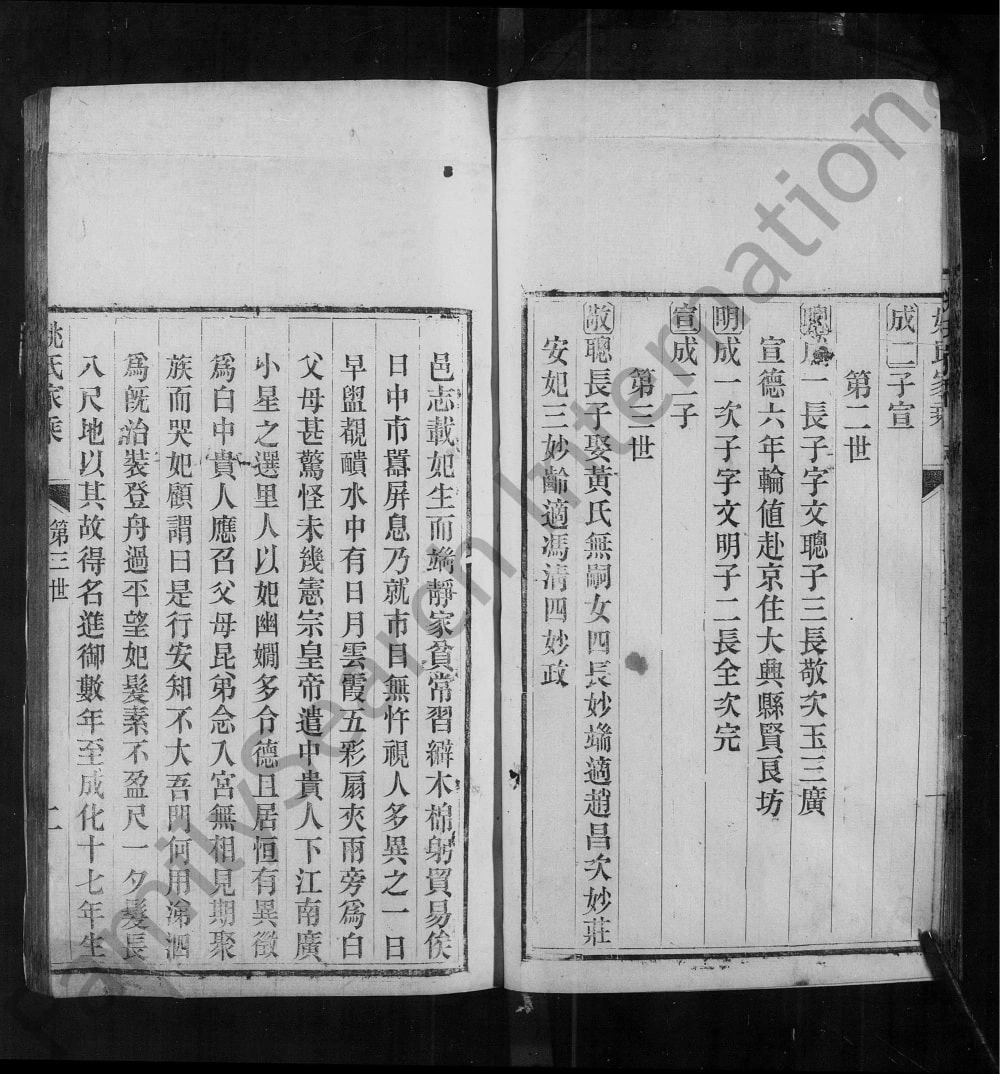 成二子宣
第二世
聰成一長子字文聰子三長敬次玉三廣
宣德六年輪值赴京住大興縣賢良坊
明成一次子字文明子二長全次完
宣成二子
第三世
敬聰長子娶黃氏無嗣女四長妙端適趙昌次妙莊
安妃三妙齡適馮清四妙政
邑志載妃生而端靜家貧常習辮木棉躬貿易俟
日中市囂屏息乃就市目無忤視人多異之一日
早盥覩靧水中有日月雲霞五彩扇夾兩旁爲白
父母甚驚怪未幾憲宗皇帝遣中貴人下江南廣
小星之選里人以妃幽嫺多令德且居恒有異徵
爲白中貴人應召父母昆弟念入宮無相見期聚
族而哭妃顧謂曰是行安知不大吾門何用涕泗
爲旣治裝登舟過平望妃髮素不盈尺一夕髮長
八尺地以其故得名進御數年至成化十七年生
姚氏家乘
第三世
二
FamilySearch International